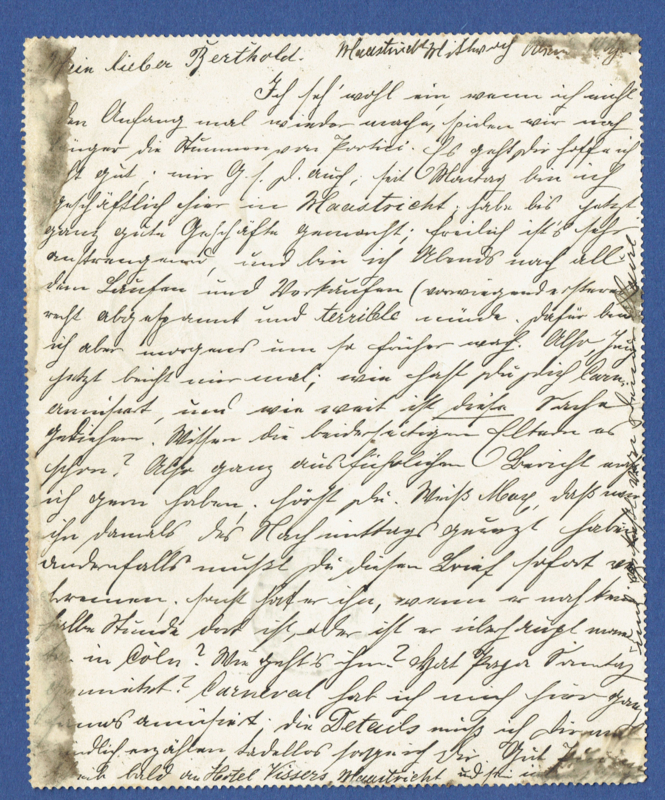 Mein lieber Berthold. Maastricht Mittwoch
Ich seh' wohl ein, wenn ich nicht
den Anfang mal wieder mache, spielen wir noch
länger die Stummen von Portici. Es geht Dir hoffe ich
recht gut; mir G. s. D. auch; seit Montag bin ich
geschäftlich hier in Maastricht; habe bis jetzt
ganz gute Geschäfte gemacht; freilich ist's sehr
anstrengend, und bin ich Abends nach all'
dem Laufen und Verkaufen (vorwiegend ersteres
recht abgespannt und terrible müde. Dafür bin
ich aber morgens um so früher wach. Also Junge
jetzt beicht mir mal; wie hast Du Dich Carn.
amüsirt, und wie weit ist diese Sache
gediehen. Wissen die beiderseitigen Eltern es
schon? Also ganz ausführlichen Bericht
ich gern haben. hörst Du. Weiß Max, daß wir
ihn damals des Nachmittags geuzt haben
andernfalls mußt Du diesen Brief sofort
brennen, sonst hat er ihn, wenn er noch keine
halbe Stunde dort ist, oder ist er überhaupt
in Cöln? Wie geht's ihm? Hat Papa
Carneval hab ich mich hier ganz
famos amüsirt. die Details muß ich Dir
mündlich erzählen tadellos sag ich Dir. Gut
bald an Hotel Vissers Maastricht und sei
und von